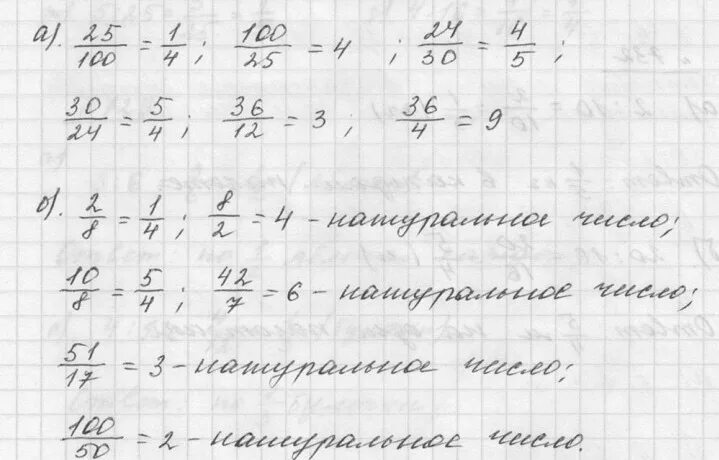 а). 25/100 = 1/4; 100/25 = 4 ; 24/30 = 4/5;
30/24 = 5/4; 36/12 = 3; 36/4 = 9
б). 2/8 = 1/4; 8/2 = 4 - натуральное число;
10/8 = 5/4; 42/7 = 6 - натуральное число;
51/17 = 3 - натуральное число;
100/50 = 2 - натуральное число.